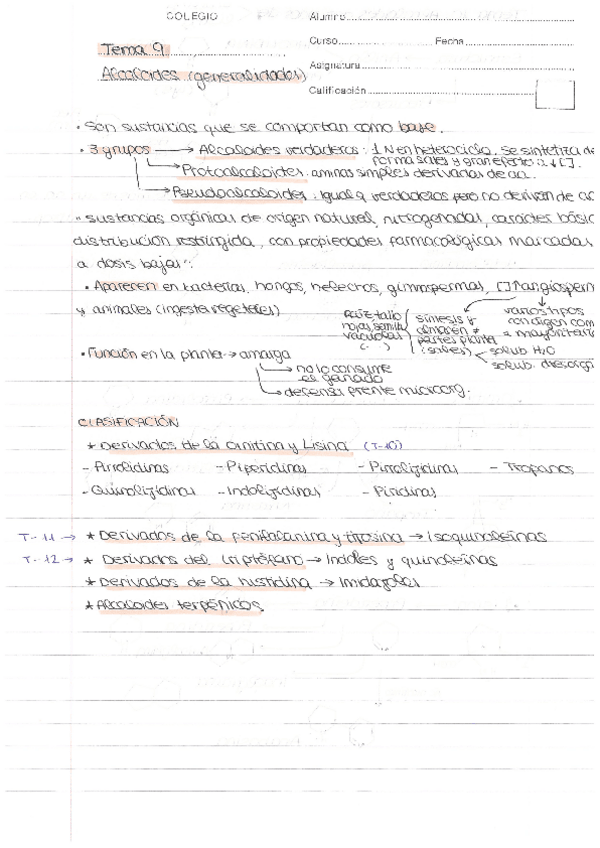 COLEGIO
Alumno
Curso Fecha
Asignatura
Calificación
Tema 9
Alcaloides (generalidades)
· Son sustancias que se comportan como base.
· 3 grupos → Alcaloides verdaderos: 1 N en heterociclo. Se sintetiza de
forma sales y gran efecto a ↓ [ ].
→ Protoalcaloides: aminas simples derivadas de aa.
→ Pseudoalcaloides: igual q verdaderos pero no derivan de aa
"sustancias orgánicas de origen natural, nitrogenadas, carácter básico
distribución restringida, con propiedades farmacológicas marcadas
a dosis bajas":
· Aparecen en bacterias, hongos, helechos, gimnospermas, [ ]↑angiosperm
y animales (ingesta vegetales)
raíz, tallo
hojas, semilla
vacuolas
(...)
síntesis y
almacén ≠
partes planta
(sales)
solub H2O
solub. disorg
varios tipos
con
a mayoritario
· Función en la planta → amarga
→ no lo consume
el ganado
→ defensa frente microorg.
CLASIFICACIÓN
* Derivados de la ornitina y Lisina (T-10)
- Pirrolidinas - Piperidinas - Pirrolizidinas - Tropanos
- Quinolizidinas - Indolizidinas - Piridinas
T-11 → * Derivados de la fenilalanina y tirosina → isoquinoleinas
T-12 → * Derivados del triptófano → Indoles y quinoleinas
* Derivados de la histidina → Imidazoles
* Alcaloides terpénicos.